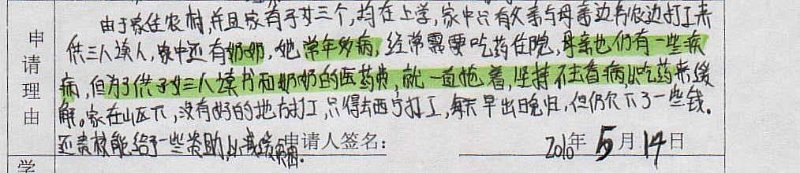 由于家住农村,并且家有子女三个,均在上学,家中只有父亲与母亲边务农边打工来
供三人读人,家中还有奶奶,她常年多病,经常需要吃药住院,母亲也仍有一些疾
病,但为了供子女三人读书和奶奶的医药费,就一直拖着,坚持不去看病,以吃药来缓
解。家在山区下,没有好的地方打工,只得去西宁打工,每天早出晚归,但仍欠下了一些钱。
还贵校能给予一些资助,以减
申请理由
申请人签名:
2010年 5月 14日
学